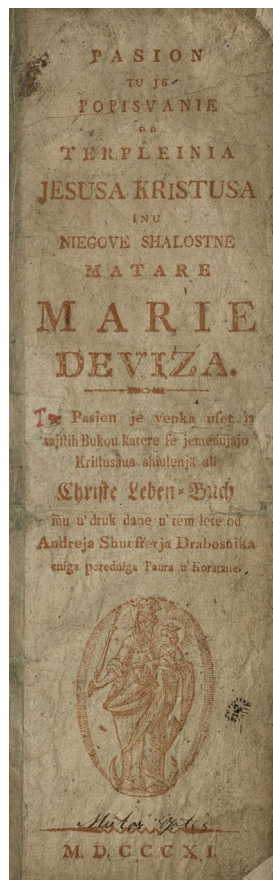 PASION
TU JE
POPISVANIE
OD
TERPLEINIA
JESUSA KRISTUSA
INU
NIEGOVE SHALOSTNE
MATARE
MARIE
DEVIZA.
Pasion je venka uset is
tajstih Bukou katere se jemenujajo
Kristusava shiulenja ali
Christe Leben-Buch
inu u' druk dane u' tem lete od
Andreja Shuesterja Drabosnika
eniga poredniga Paura u' Koratane.
M. D. CCCXI.